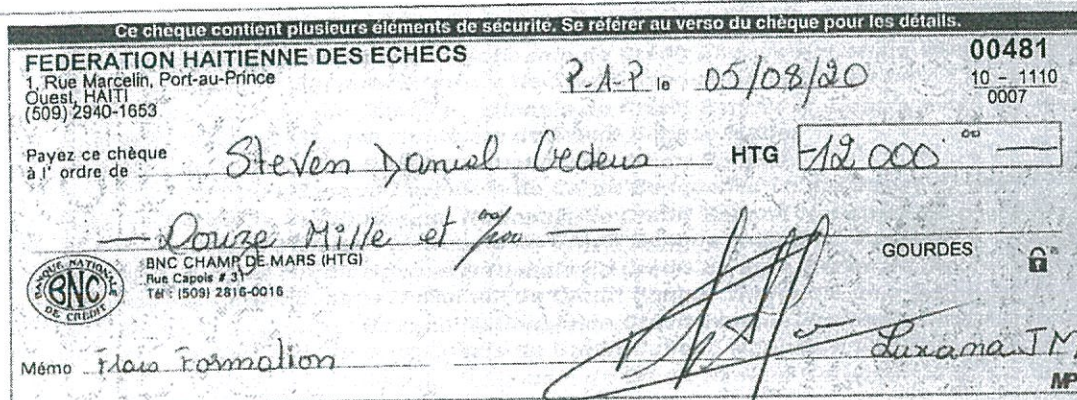 Ce cheque contient plusieurs éléments de sécurité. Se référer au verso du chèque pour les détails.
FEDERATION HAITIENNE DES ECHECS
1, Rue Marcelin, Port-au-Prince
Ouest, HAITI
(509) 2940-1653
P-A-P le 05/08/20
00481
10 - 1110
0007
Payez ce chèque
à l'ordre de Steven Daniel Cedeus HTG -12 000 00
Douze Mille et 00/100
GOURDES
BANQUE NATIONALE DE CREDIT
BNC
BNC CHAMP DE MARS (HTG)
Rue Capois # 31
Tél : (509) 2816-0016
Mémo Frais Formation
Luxana JM
MP